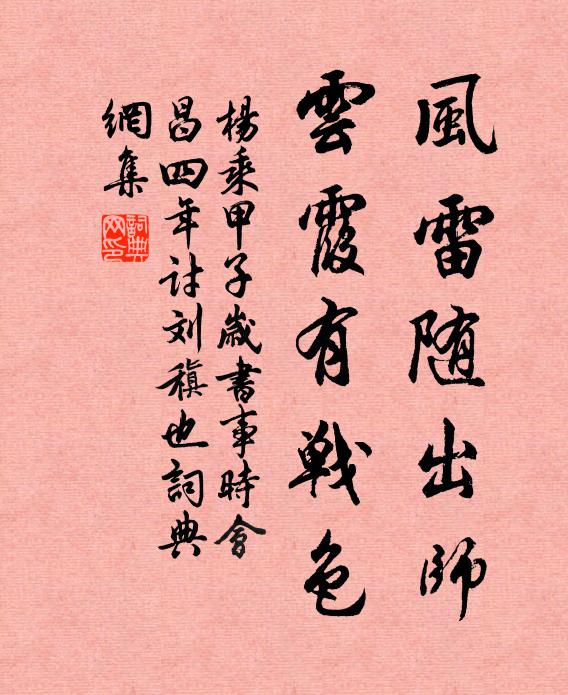 風雷随出師
雲霞有戦色
楊乘甲子歲書事時會
昌四年討刘稹也詞典
網集
詞典
网印